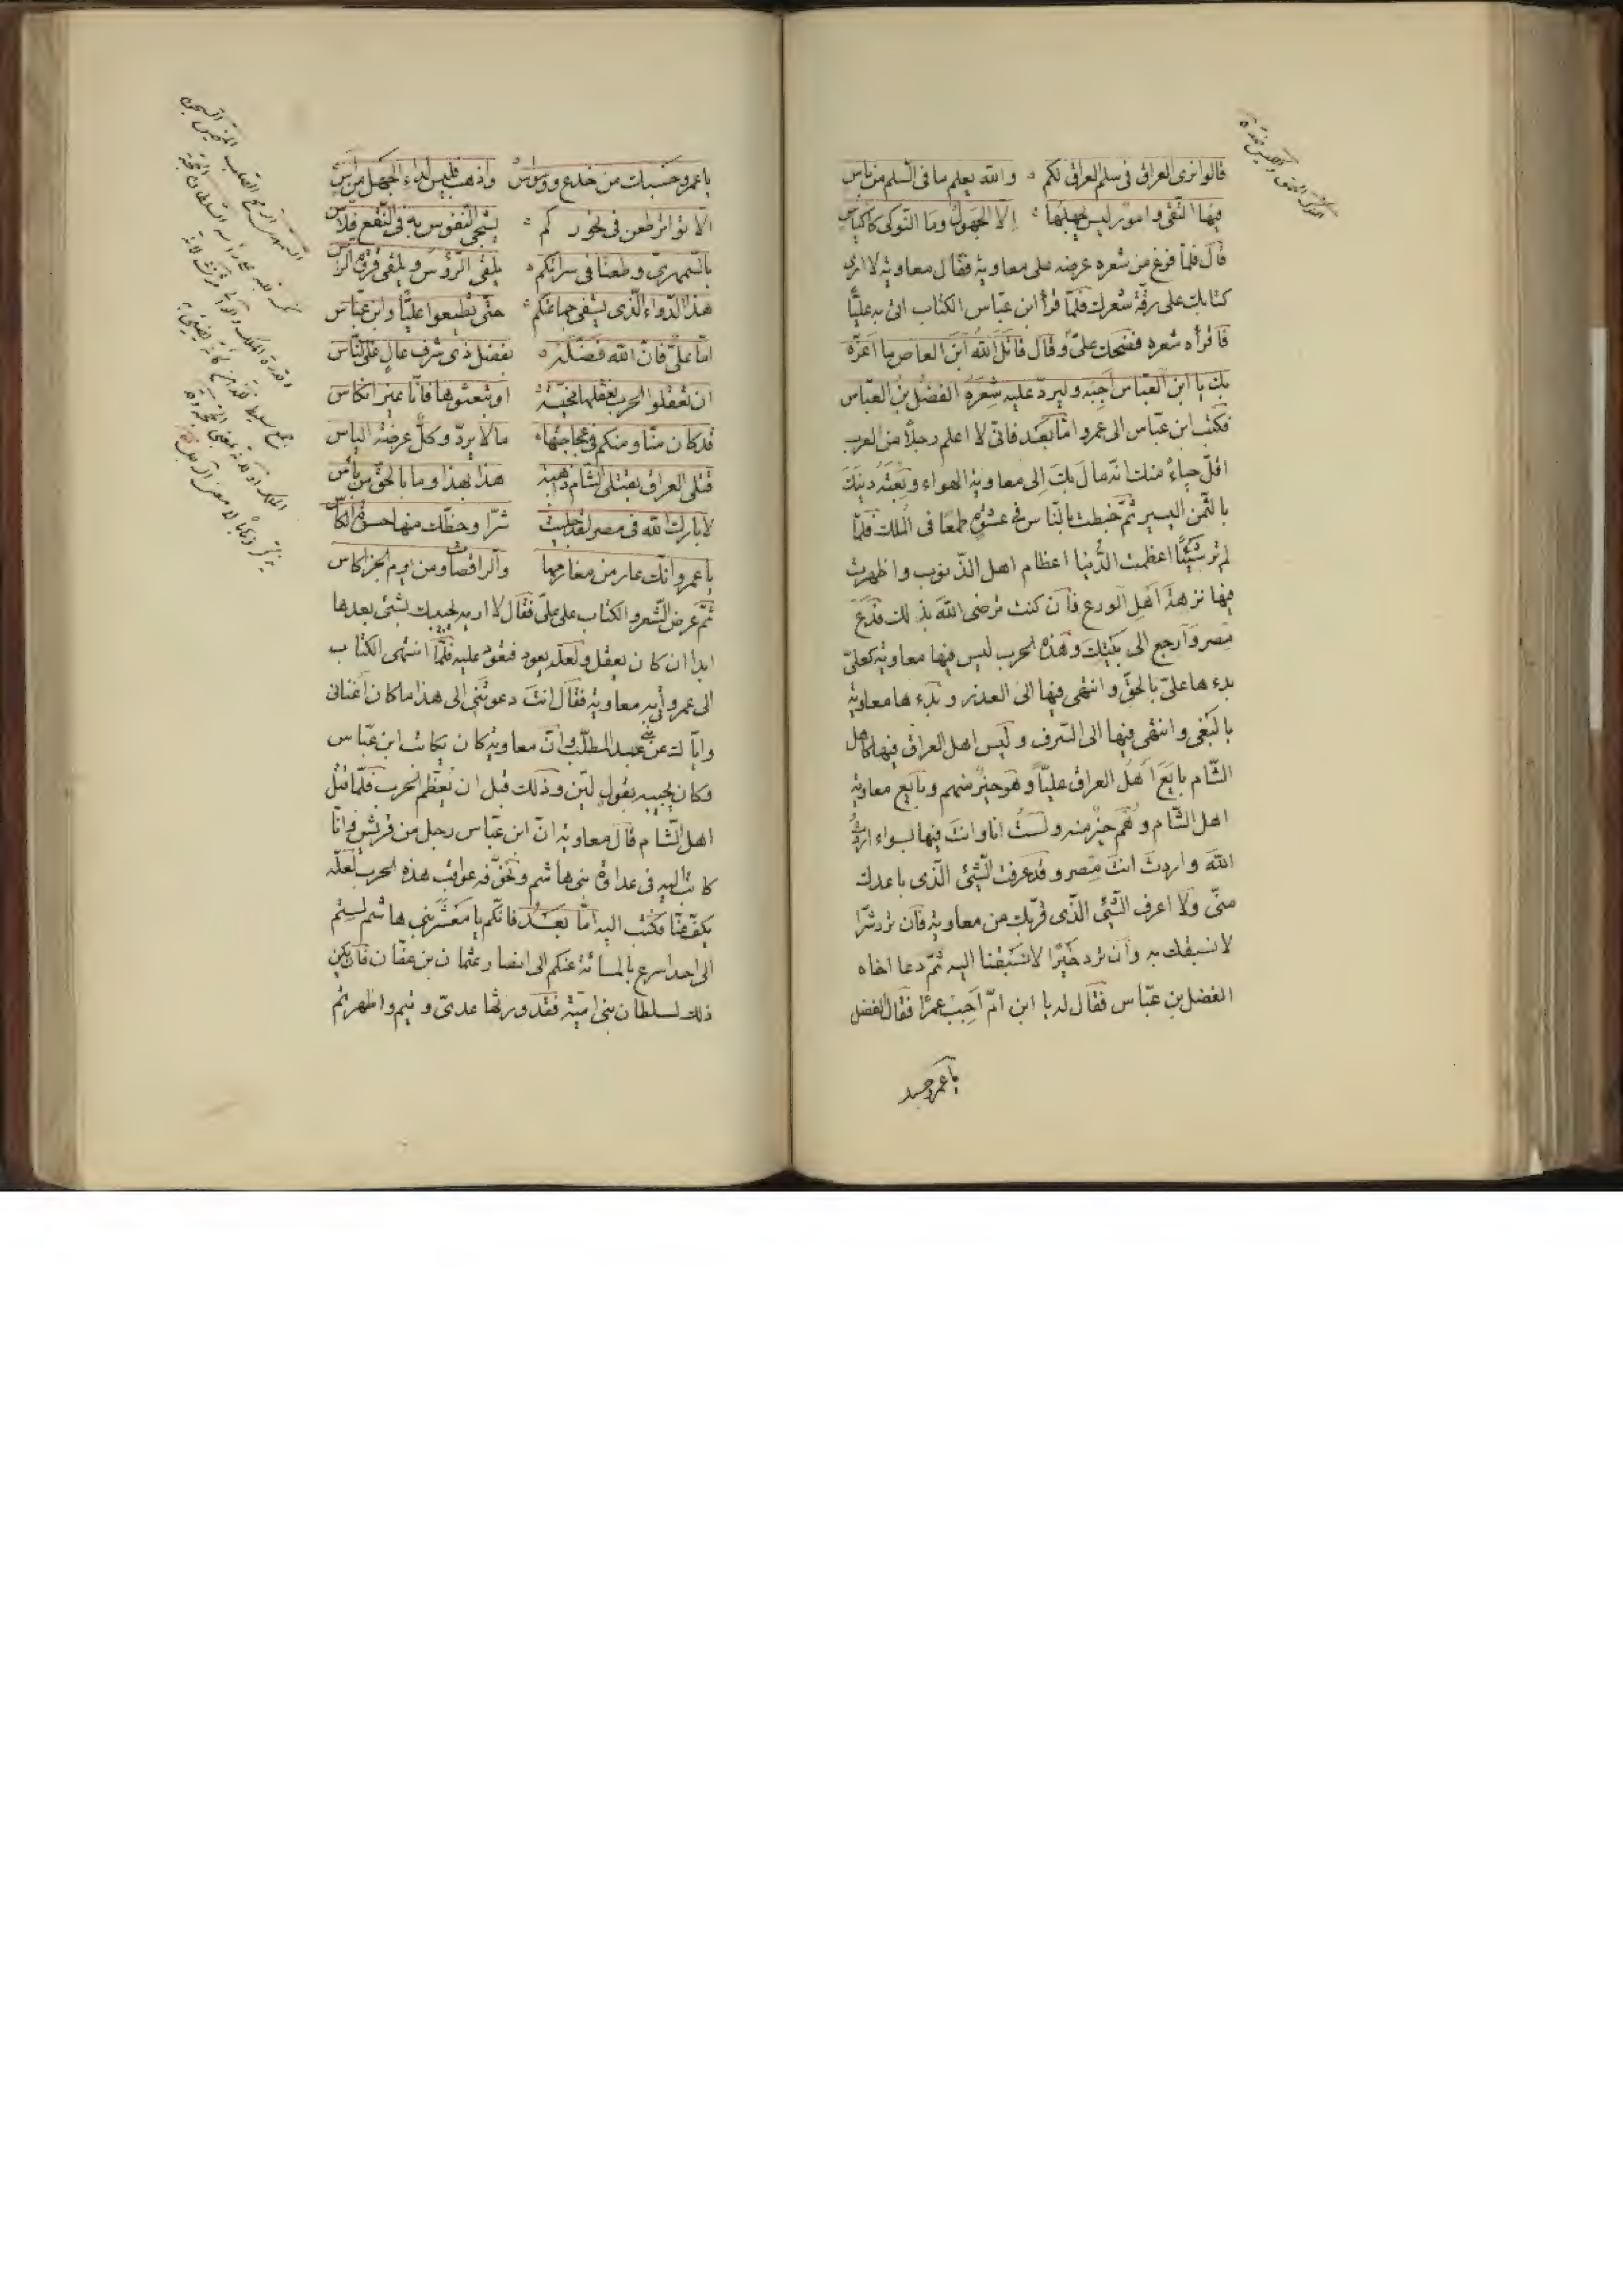 قالوا نرى العراق فى سلم العراق لكم والله يعلم ما فى السلم من باس
فيها التقى وامور ليس يجهلها الا الجهول وما النوكى كاكياس
قال فلما فرغ من شعره عرضه على معاوية فقال معاوية لا ارى
كتابك على رقة شعرك فلما قرأ ابن عباس الكتاب اتى به عليًا
فاقرأه شعره فضحك علىّ وقال قاتل الله ابن العاص ما اغرّه
بك يا ابن العباس اجبه وليرد عليه شعره الفضل بن العباس
فكتب ابن عباس الى عمرو اما بعد فانى لا اعلم رجلاً من العرب
اقل حياءً منك انه مال بك الى معاوية الهواء وبعته دينك
بالثمن اليسير ثم خبطت بالناس فى عشوة طمعًا فى الملك فلما
لم تر شيئًا اعظمت الدنيا اعظام اهل الذنوب واظهرت
فيها نزهة اهل الورع فان كنت ترضى الله بذلك فدع
مصر وارجع الى بيتك وهذه الحرب ليس فيها معاوية كعلىّ
بدءها علىّ بالحق وانتهى فيها الى العذر وبدءها معاوية
بالبغى وانتهى فيها الى السرف وليس اهل العراق فيها كاهل
الشام بايع اهل العراق عليًا وهو خير منهم وبايع معاوية
اهل الشام وهم خير منه ولست انا وانت فيها بسواء اردت
الله واردت انت مصر وقد عرفت الشئ الذى باعدك
منى ولا اعرف الشئ الذى قربك من معاوية فان ترد شرًا
لا نسبقك به وان ترد خيرًا لا تسبقنا اليه ثم دعا اخاه
الفضل بن عباس فقال له يا ابن ام اجب عمرًا فقال الفضل
يا عمرو حسبك
يا عمرو حسبك من خدع ووسواس واذهب فليس لداء الجهل من آس
الا تواتر طعن فى نحوركم يشجى النفوس به فى النقع
بالسمهرىّ وطعنًا فى سراتكم
هذا الدواء الذى يشفى جماعتكم حتى تطيعوا عليًا وابن عباس
اما علىّ فان الله فضله بفضل ذى شرف عال على الناس
ان تعقلوا الحرب نعقلها مخيسة او تبعثوها فانا غير انكاس
قد كان منا ومنكم فى عجاجتها ما لا يرد وكل عرضة الباس
قتلى العراق بقتلى الشام ذاهبة هذا بهذا وما بالحق من باس
لا بارك الله فى مصر لقد جلبت شرًا وحظك منها حسوة الكاس
يا عمرو انك عار من مغارمها والراقصات ومن يوم الجزا كاس
ثم عرض الشعر والكتاب على علىّ فقال لا اريه يجيبك بشئ بعدها
ابدا ان كان يعقل ولعله يعود فتعود عليه فلما انتهى الكتاب
الى عمرو اتى به معاوية فقال انت دعوتنى الى هذا ما كان اغنانى
واياك عن بنى عبد المطلب وان معاوية كان يكاتب ابن عباس
وكان يجيبه بقول لين وذلك قبل ان تعظم الحرب فلما قتل
اهل الشام قال معاوية ان ابن عباس رجل من قريش وانا
كاتب اليه فى عداوة بنى هاشم ونخوفه عواقب هذه الحرب لعله
يكف عنا فكتب اليه اما بعد فانكم يا معشر بنى هاشم لستم
الى احد اسرع بالمسائة منكم الى انصار عثمان بن عفان فان يكن
ذلك لسلطان بنى امية فقد ورثها عدىّ وتيم واظهرتم